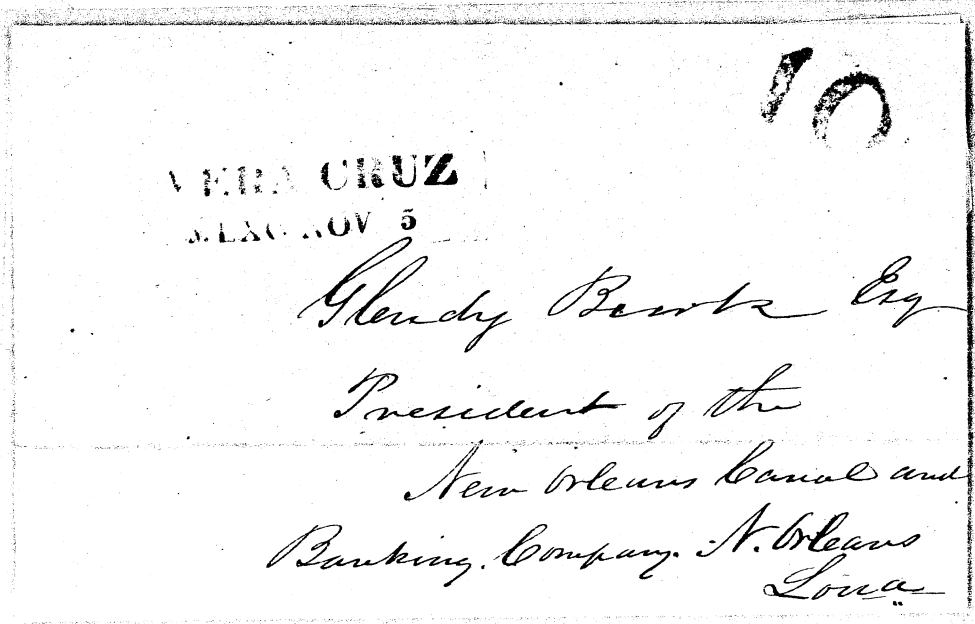 10
VERA CRUZ
MEXC NOV 5
Glendy Burke Esq
President of the
New Orleans Canal and
Banking Company. N. Orleans
Loua